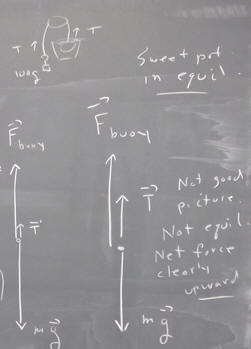 T
T
Sweet pot
in equil.
F buoy
T
m g
F buoy
T
m g
Not good
picture.
Not equil.
Net force
clearly
upward